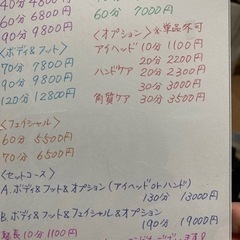 40分 4800円
60分 6800円
90分 9800円
〈ボディ&フット〉
70分 7800円
90分 9800円
120分 12800円
〈フェイシャル〉
60分 5500円
70分 6500円
60分 7000円
〈オプション〉※単品不可
アイヘッド 10分 1100円
20分 2200円
ハンドケア 20分 2300円
30分 3000円
角質ケア 30分 3500円
〈セットコース〉
A.ボディ&フット&オプション(アイヘッドorハンド)
130分 13000円
B.ボディ&フット&フェイシャル&オプション
190分 19000円
延長10分1100円